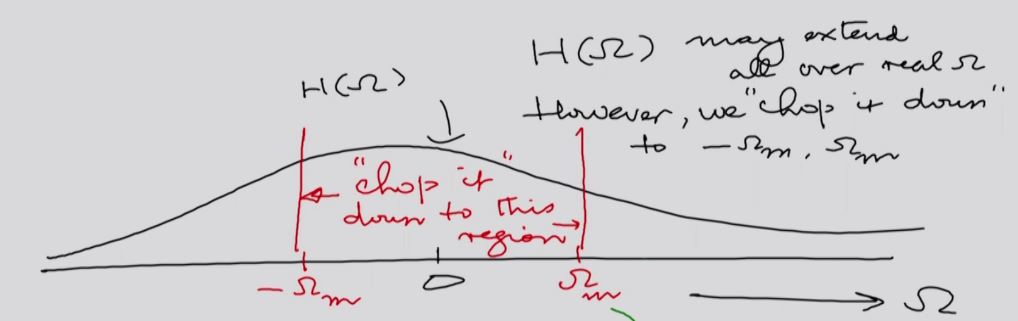 H(Ω) may extend
all over real Ω
However, we "chop it down"
to -Ωm, Ωm
H(Ω)
"chop it"
down to this
region
-Ωm
0
Ωm
Ω